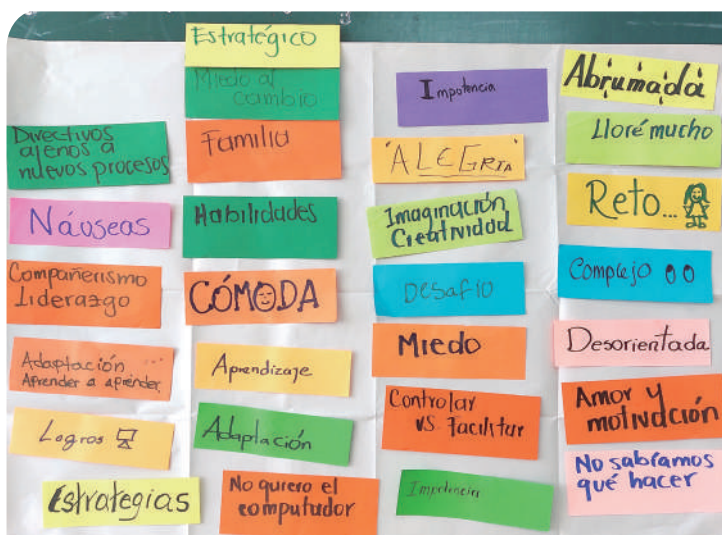 Directivos
ajenos a
nuevos procesos
Náuseas
Compañerismo
Liderazgo
Adaptación ...
Aprender a aprender.
Logros
Estrategias
Estratégico
Miedo al
cambio
Familia
Habilidades
CÓMODA
Aprendizaje
Adaptación
No quiero el
computador
Impotencia
ALEGRIA
Imaginación
Creatividad
DESAFIO
Miedo
Controlar
VS. Facilitar
Impotencia
Abrumada
Lloré mucho
Reto...
Complejo
Desorientada
Amor y
motivación
No sabíamos
qué hacer